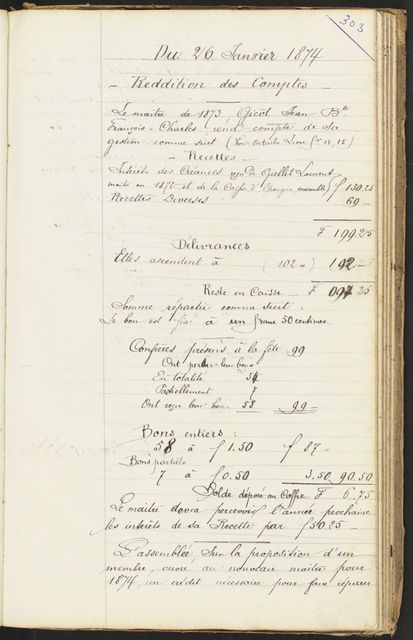 303
Du 26 Janvier 1874
Reddition des Comptes
Le maître de 1873, Gicot Jean Bte
François-Charles rend compte de sa
gestion comme suit (Voir détails Livre fo 12, 15)
Recettes
Intérêts des Créances reçu de Quellet Laurent
maître en 1872 et de la Caisse d'Epargne ensemble f 130.25
Recettes Diverses 69 -
F 199.25
Délivrances
Elles ascendent à (102 -) 102 -
Reste en Caisse F 097 25
Somme répartie comme suit :
Le bon est fixé à un franc 50 centimes.
Confrères présens à la fête 99
Ont perdu leur bon
En totalité 34
Partiellement 7
Ont reçu leur bon 58 99 -
Bons entiers :
58 à f 1.50 f 87 -
Bons partiels
7 à f 0.50 3.50 90.50
Solde déposé au Coffre F 6.75
Le maître devra percevoir l'année prochaine
les intérêts de sa Recette par f 50.25 -
L'assemblée sur la proposition d'un
membre, ouvre au nouveau maître pour
1874, un crédit nécessaire pour faire réparer